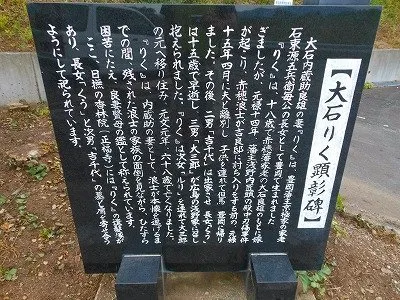 【大石りく顕彰碑】
大石内蔵助良雄の妻『りく』は、豊岡藩主京極家の家老
石束源五兵衛毎公の長女として豊岡で生まれました。
『りく』は、十八歳で赤穂藩家老の大石良雄のもとに嫁
ぎましたが、元禄十四年 藩主浅野内匠頭の殿中刃傷事件
が起こり、赤穂浪士が吉良邸に討ち入りをする前の元禄
十五年四月に夫と離別し 子供を連れて但馬・豊岡に帰り
ました。その後、二男『吉千代』は出家させ 長女『くう』
は十五歳で早逝し 三男『大三郎』が広島の浅野家に召し
抱えられました。『りく』は次女『ルリ』を連れて大三郎
の元へ移り住み 元文元年 六十八歳で亡くなりました。
『りく』は、内蔵助の妻として、浪士が本懐を遂げるま
での間、残された浪士の家族の面倒を見ながら、ひたすら
困苦にたえ、良妻賢母の鑑として称えられています。
ここ、日撫の香林院(正福寺)には『りく』の遺髪塚が
あり、長女『くう』と次男『吉千代』の墓に寄り添う
ようにして祀られています。